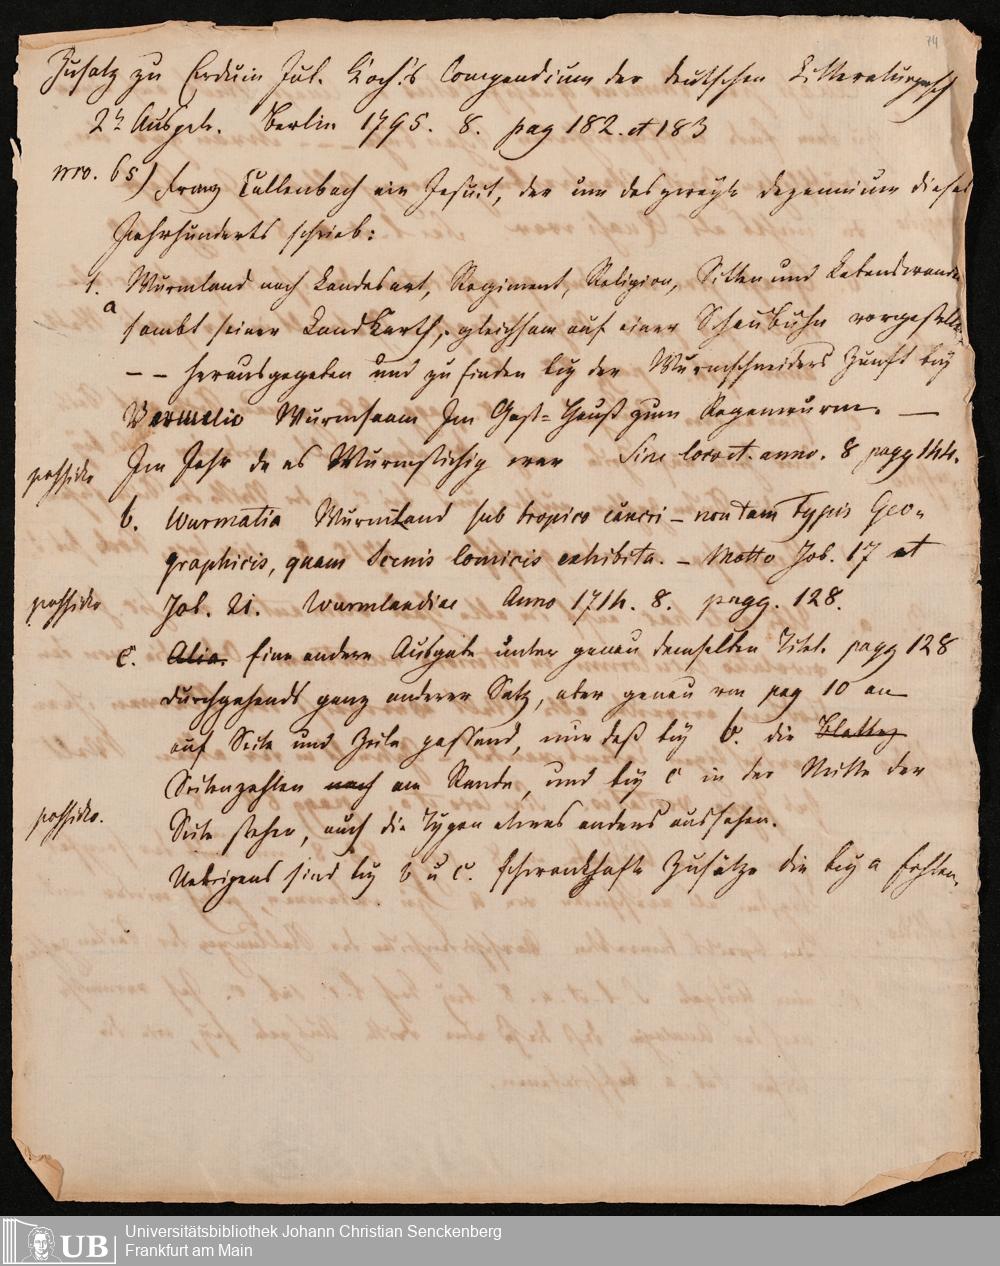 74
Zusatz zu Erduin Jul. Koch's Compendium der deutschen Litteraturgesch
2te Ausgabe. Berlin 1795. 8. pag 182. et 183
nro. 65) Franz Callenbach ein Jesuit, der im des zweyte Dezennium dieses
Jahrhunderts schrieb:
1. Wurmland nach Landesart, Regiment, Religion, Sitten und Lebenswandel
a
sambt seiner LandKarth, gleichsam auf einer Schaubühn vorgestelt
-- herausgegeben und zu finden bey der Wurmschneiders Zunft bey
Vermelio Wurmsaam Im Gast-Hauß zum Regenwurm. —
Im Jahr da es Wurmstichig war Sine loco et. anno. 8 pagg 144.
possideo
b. Wurmatia Wurmland sub tropico cancri – non tam Typis Geo-
graphicis, quam Scenis Comicis exhibita. – Motto Job. 17 et
Job. 21. Wurmlandiae Anno 1714. 8. pagg. 128.
possideo
c. Alia. Eine andere Ausgabe unter genau demselben Titel. pagg 128
durchgehends ganz anderer Satz, aber genau von pag 10 an
auf Seite und Zeile passend, nur daß bey b. die Blattez
Seitenzahlen nach am Rande, und bey c in der Mitte der
Seite stehen, auch die Typen etwas anders aussehen.
possideo.
Uebrigens sind bey b u c. schwankhafte Zusätze die bey a fehlen.
Universitätsbibliothek Johann Christian Senckenberg
Frankfurt am Main
UB